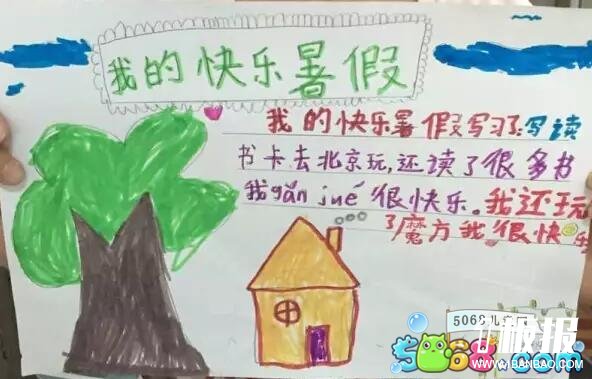 我的快乐暑假
我的快乐暑假写习了写读
书卡去北京玩,还读了很多书
我gǎn jué很快乐。我还玩
了魔方我很快乐
5068儿童网
板报
5068.com
WWW.4BANBAO.COM